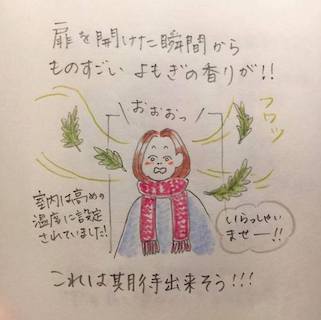 扉を開けた瞬間から
ものすごい よもぎの香りが!!
おぉおっ
フワッ
室内は高めの
温度に設定
されていました!
いらっしゃい
ませー!!
これは期待出来そう!!!